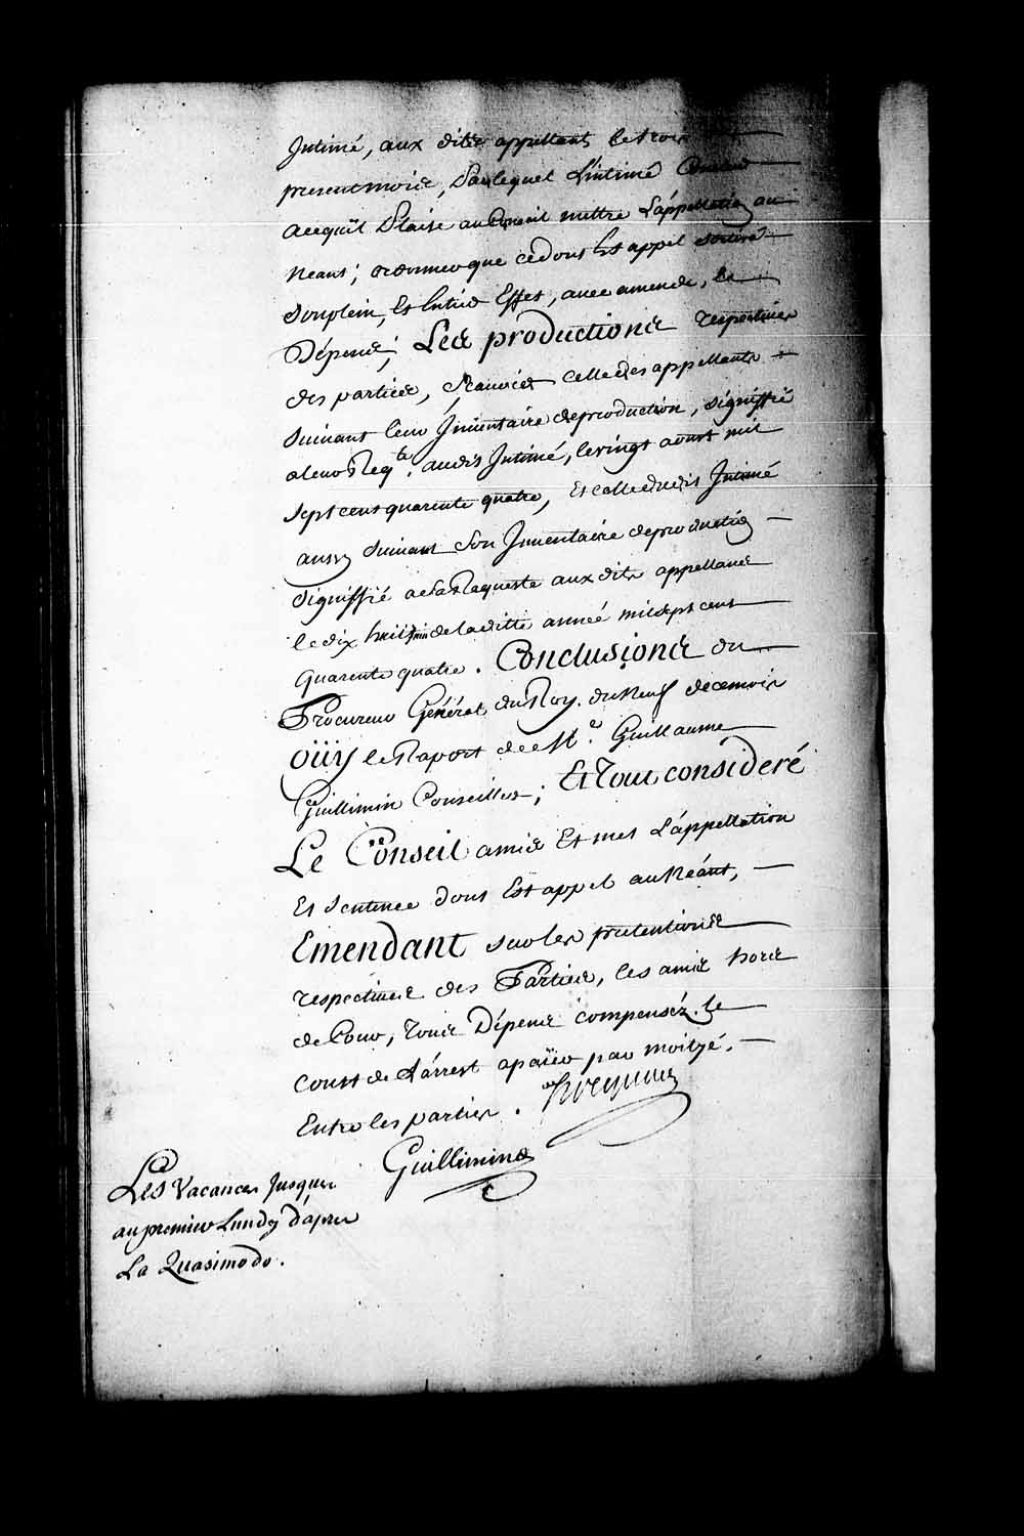 Intimé, aux dits appellants le trois
present mois, Par lequel L'intimé Conclud
acequ'il Plaise au Conseil mettre L'appellation au
Neant; ordonner que ce dont Est appel sortira
son plein, Et Entier Effet, avec amende, Et
Dépens; Les productions respectives
des parties, Sçavoir celle des appellants
suivant leur Inventaire de production, signiffié
a leur Reqte. audit Intimé, le vingt aoust mil
sept cent quarente quatre, Et celle dudit Intimé
aussy suivant son Inventaire de production
signiffié a sa Requeste aux dits appellans
le dix huit de laditte année mil sept cent
quarente quatre. Conclusions du
Procureur Général du Roy. du Neuf decembre
oüy le Raport de Me. Guillaume
Guillimin Conseiller; Et Tout consideré
Le Conseil a mis Et met L'appellation
Et sentence dont Est appel au Néant,
Emendant sur les prétentions
respectives des Parties, les a mis hors
de Cour, Tous Dépens compenséz. le
coust de L'arrest a païer par moityé.
Entre les parties. Hocquart
Guillimin
Les Vacances Jusques
au premier Lundy d'après
La Quasimodo.